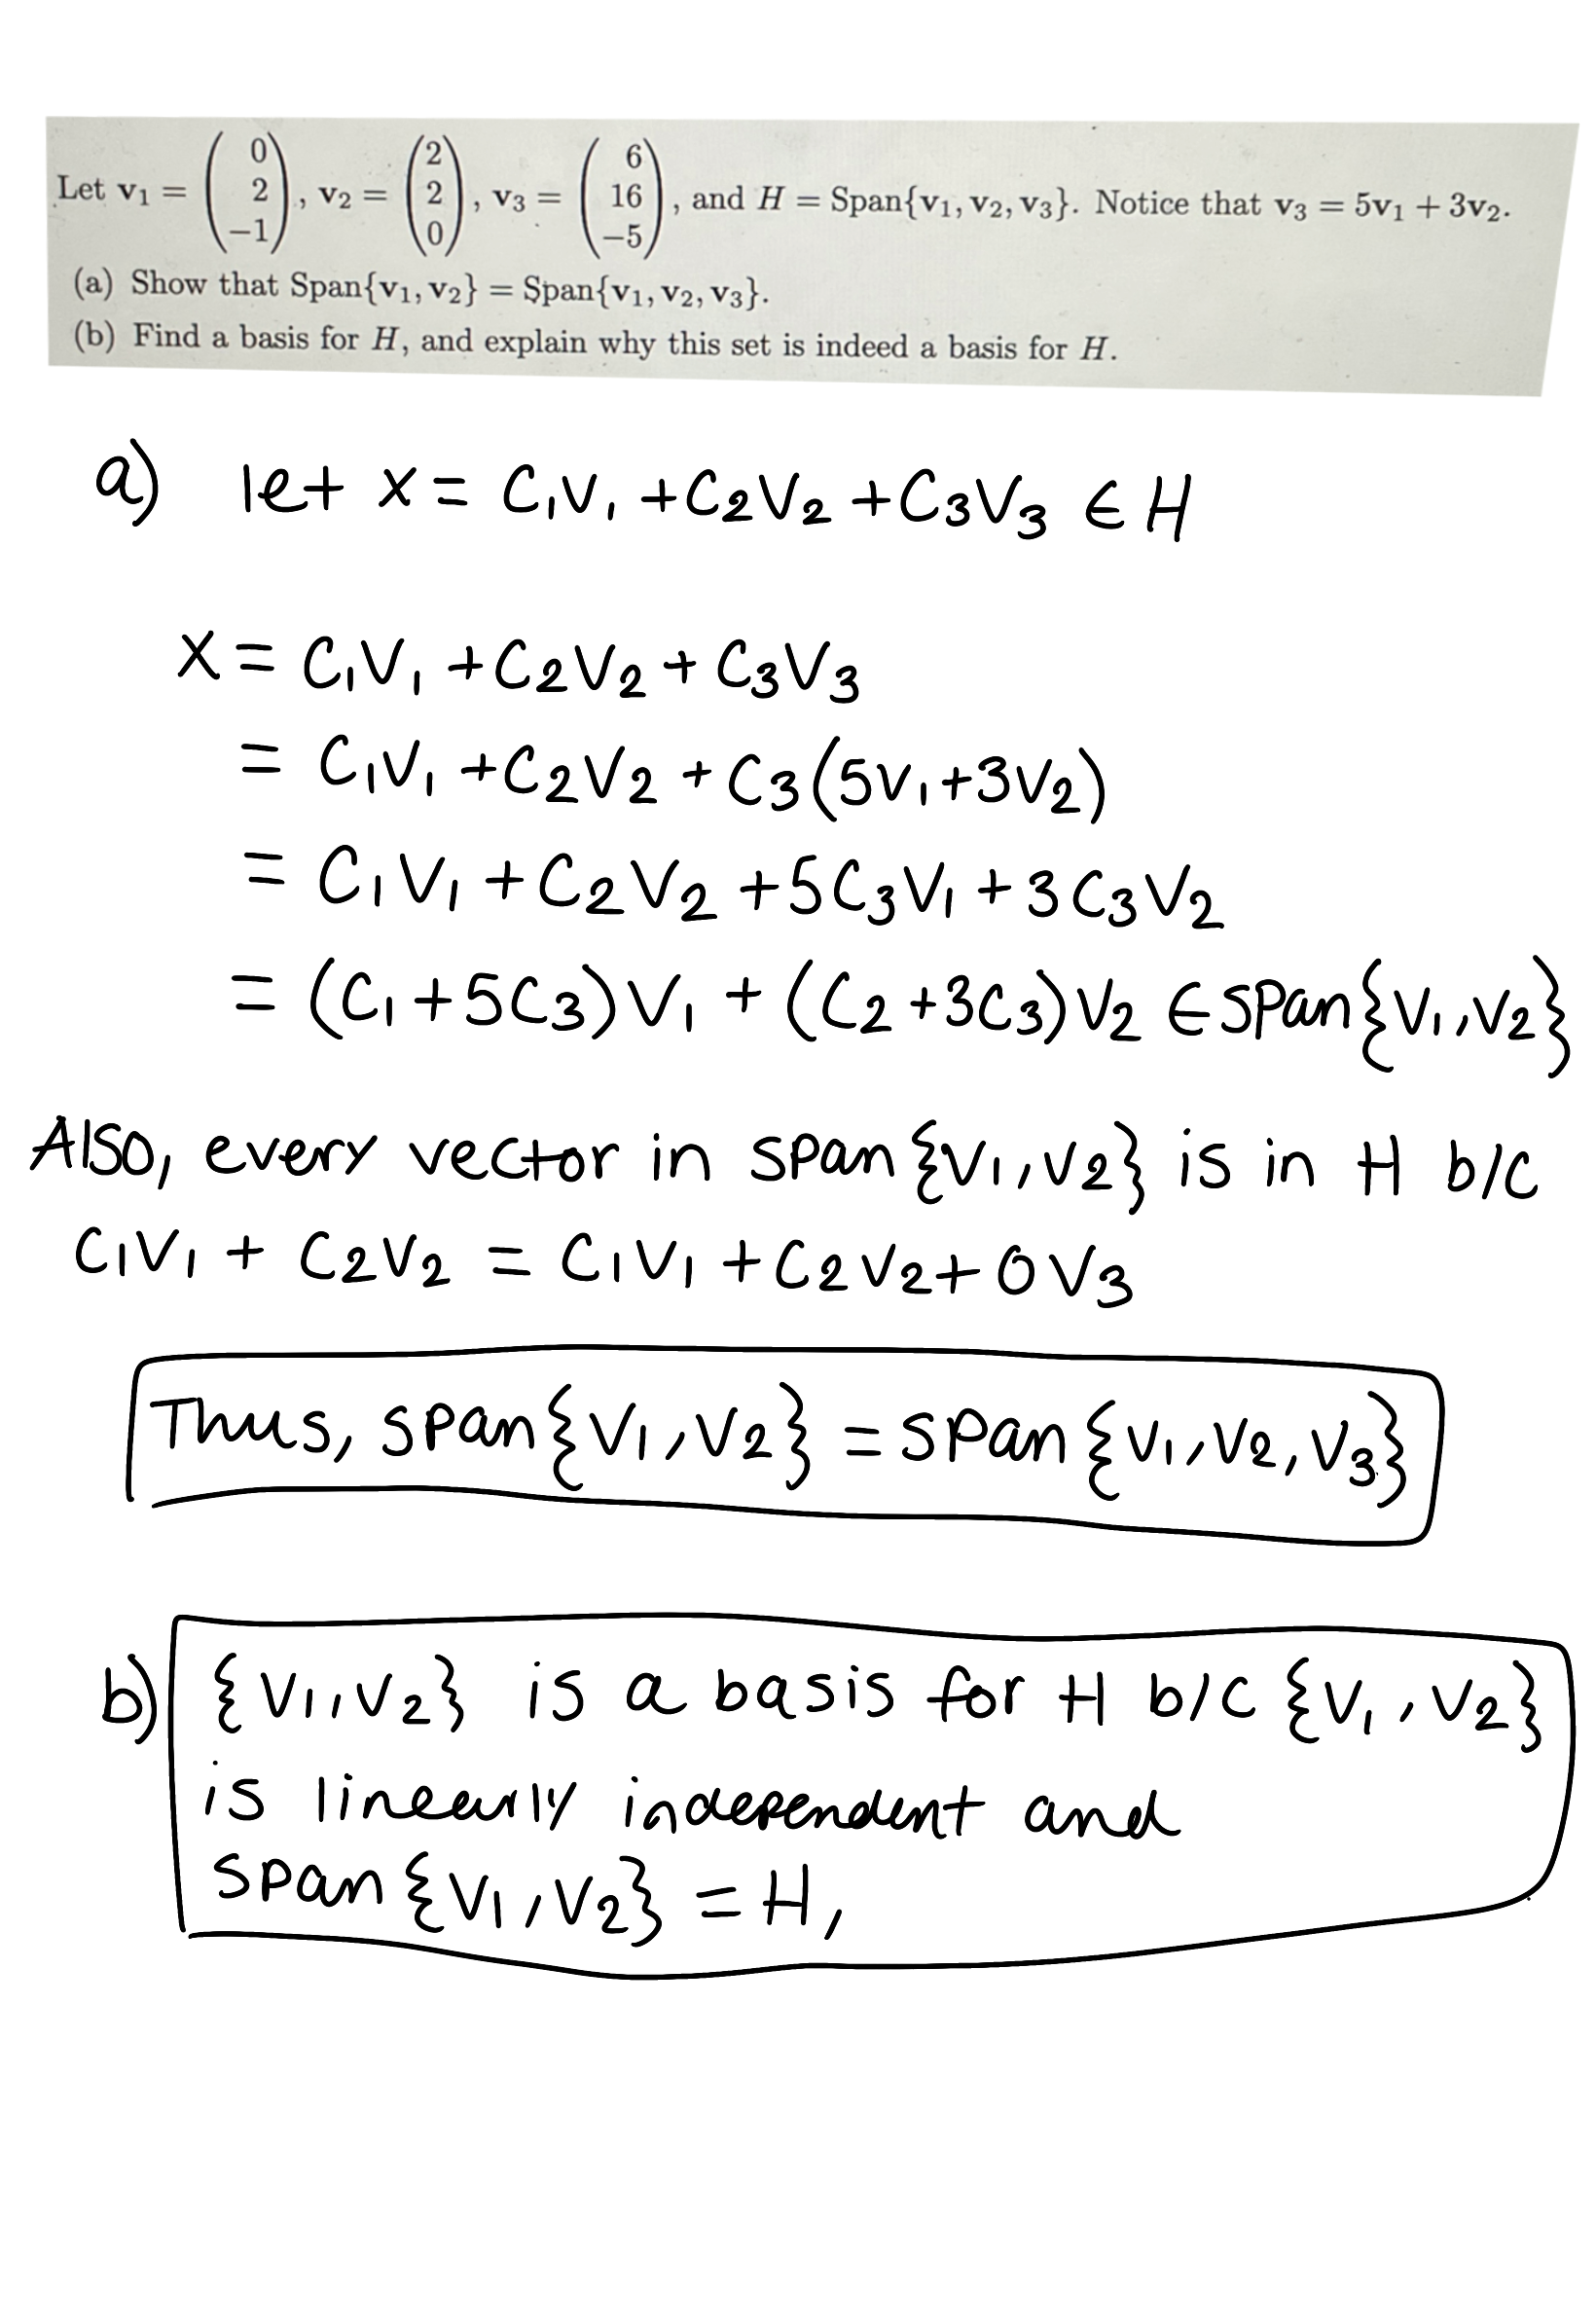 Let v₁ = (0 2 −1), v₂ = (2 2 0), v₃ = (6 16 −5), and H = Span{v₁, v₂, v₃}. Notice that v₃ = 5v₁ + 3v₂.
(a) Show that Span{v₁, v₂} = Span{v₁, v₂, v₃}.
(b) Find a basis for H, and explain why this set is indeed a basis for H.
a) let x = C₁V₁ + C₂V₂ + C₃V₃ ∈ H
x = C₁V₁ + C₂V₂ + C₃V₃
= C₁V₁ + C₂V₂ + C₃(5V₁+3V₂)
= C₁V₁ + C₂V₂ + 5C₃V₁ + 3C₃V₂
= (C₁+5C₃)V₁ + (C₂+3C₃)V₂ ∈ span{V₁,V₂}
Also, every vector in span{V₁,V₂} is in H b/c
C₁V₁ + C₂V₂ = C₁V₁ + C₂V₂ + 0V₃
Thus, span{V₁,V₂} = span{V₁,V₂,V₃}
b) {V₁,V₂} is a basis for H b/c {V₁,V₂}
is linearly independent and
span{V₁,V₂} = H,